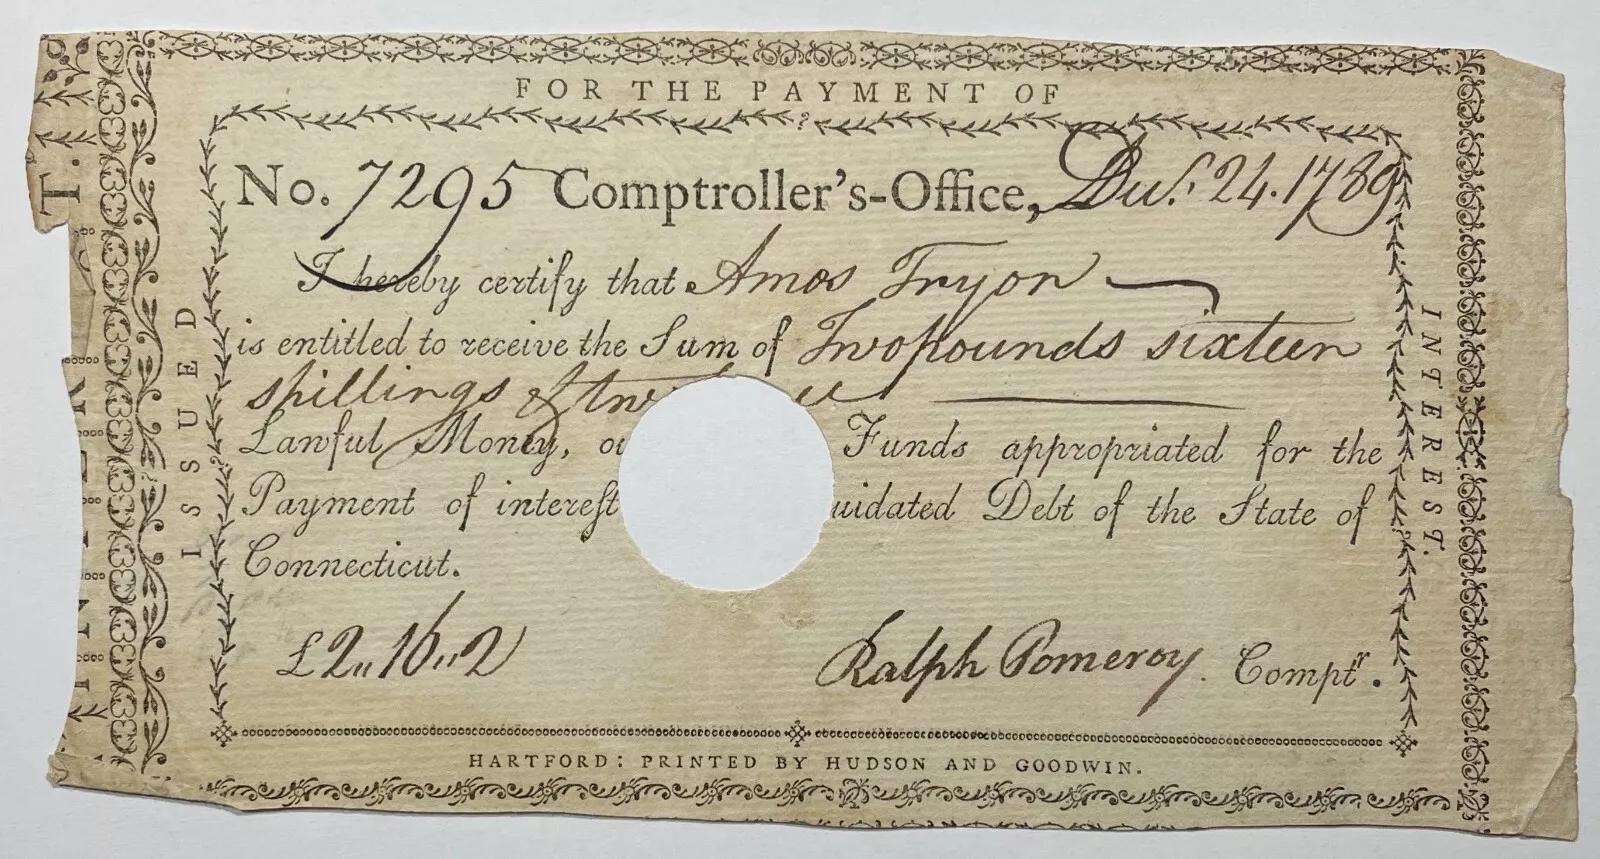 FOR THE PAYMENT OF
No. 7295 Comptroller's-Office, Decr. 24. 1789
I hereby certify that Amos Tryon
is entitled to receive the Sum of Two pounds sixteen
shillings & tw
Lawful Money, ou Funds appropriated for the
Payment of interest uidated Debt of the State of
Connecticut.
£2,,16,,2
Ralph Pomeroy. Comptr.
HARTFORD: PRINTED BY HUDSON AND GOODWIN.
ISSUED
INTEREST.
T.